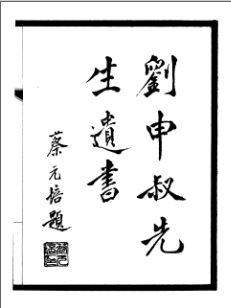 劉申叔先
生遺書
蔡元培題